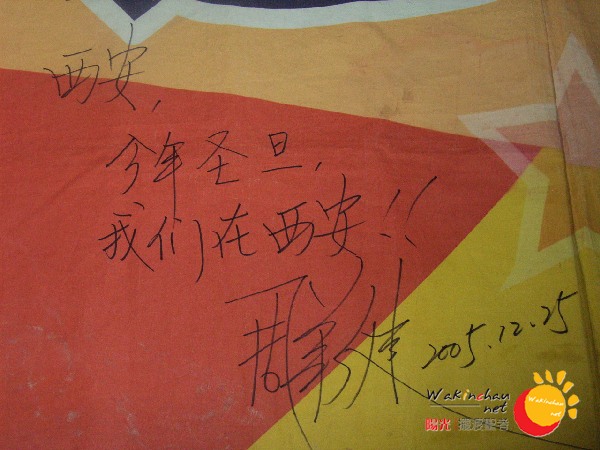 西安,
今年圣旦,
我们在西安!!
周華健 2005.12.25
Wakinchau
net
陽光
Wakinchau
net